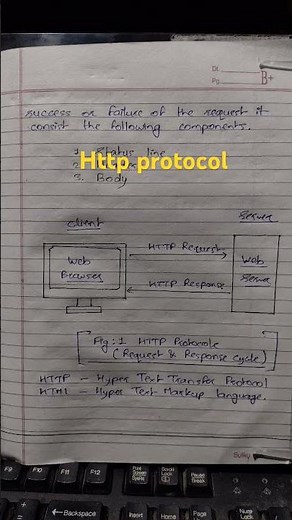 Dt.
Pg.
B+
success or failure of the request it
consist the following components.
1. Status line
Http protocol
2.
3. Body
client
Server
HTTP Request.
Web
Browser
Web
Server
HTTP Response
Fig:1 HTTP Protocole
(Request & Response cycle)
HTTP - Hyper Text Transfer Protocol
HTMl - Hyper Text Markup language.
F9
F10
F11
F12
Print
Screen
SysRq
Scroll
Lock
Pause
Break
←Backspace
Insert
Home
Page
Up
Num
Lock